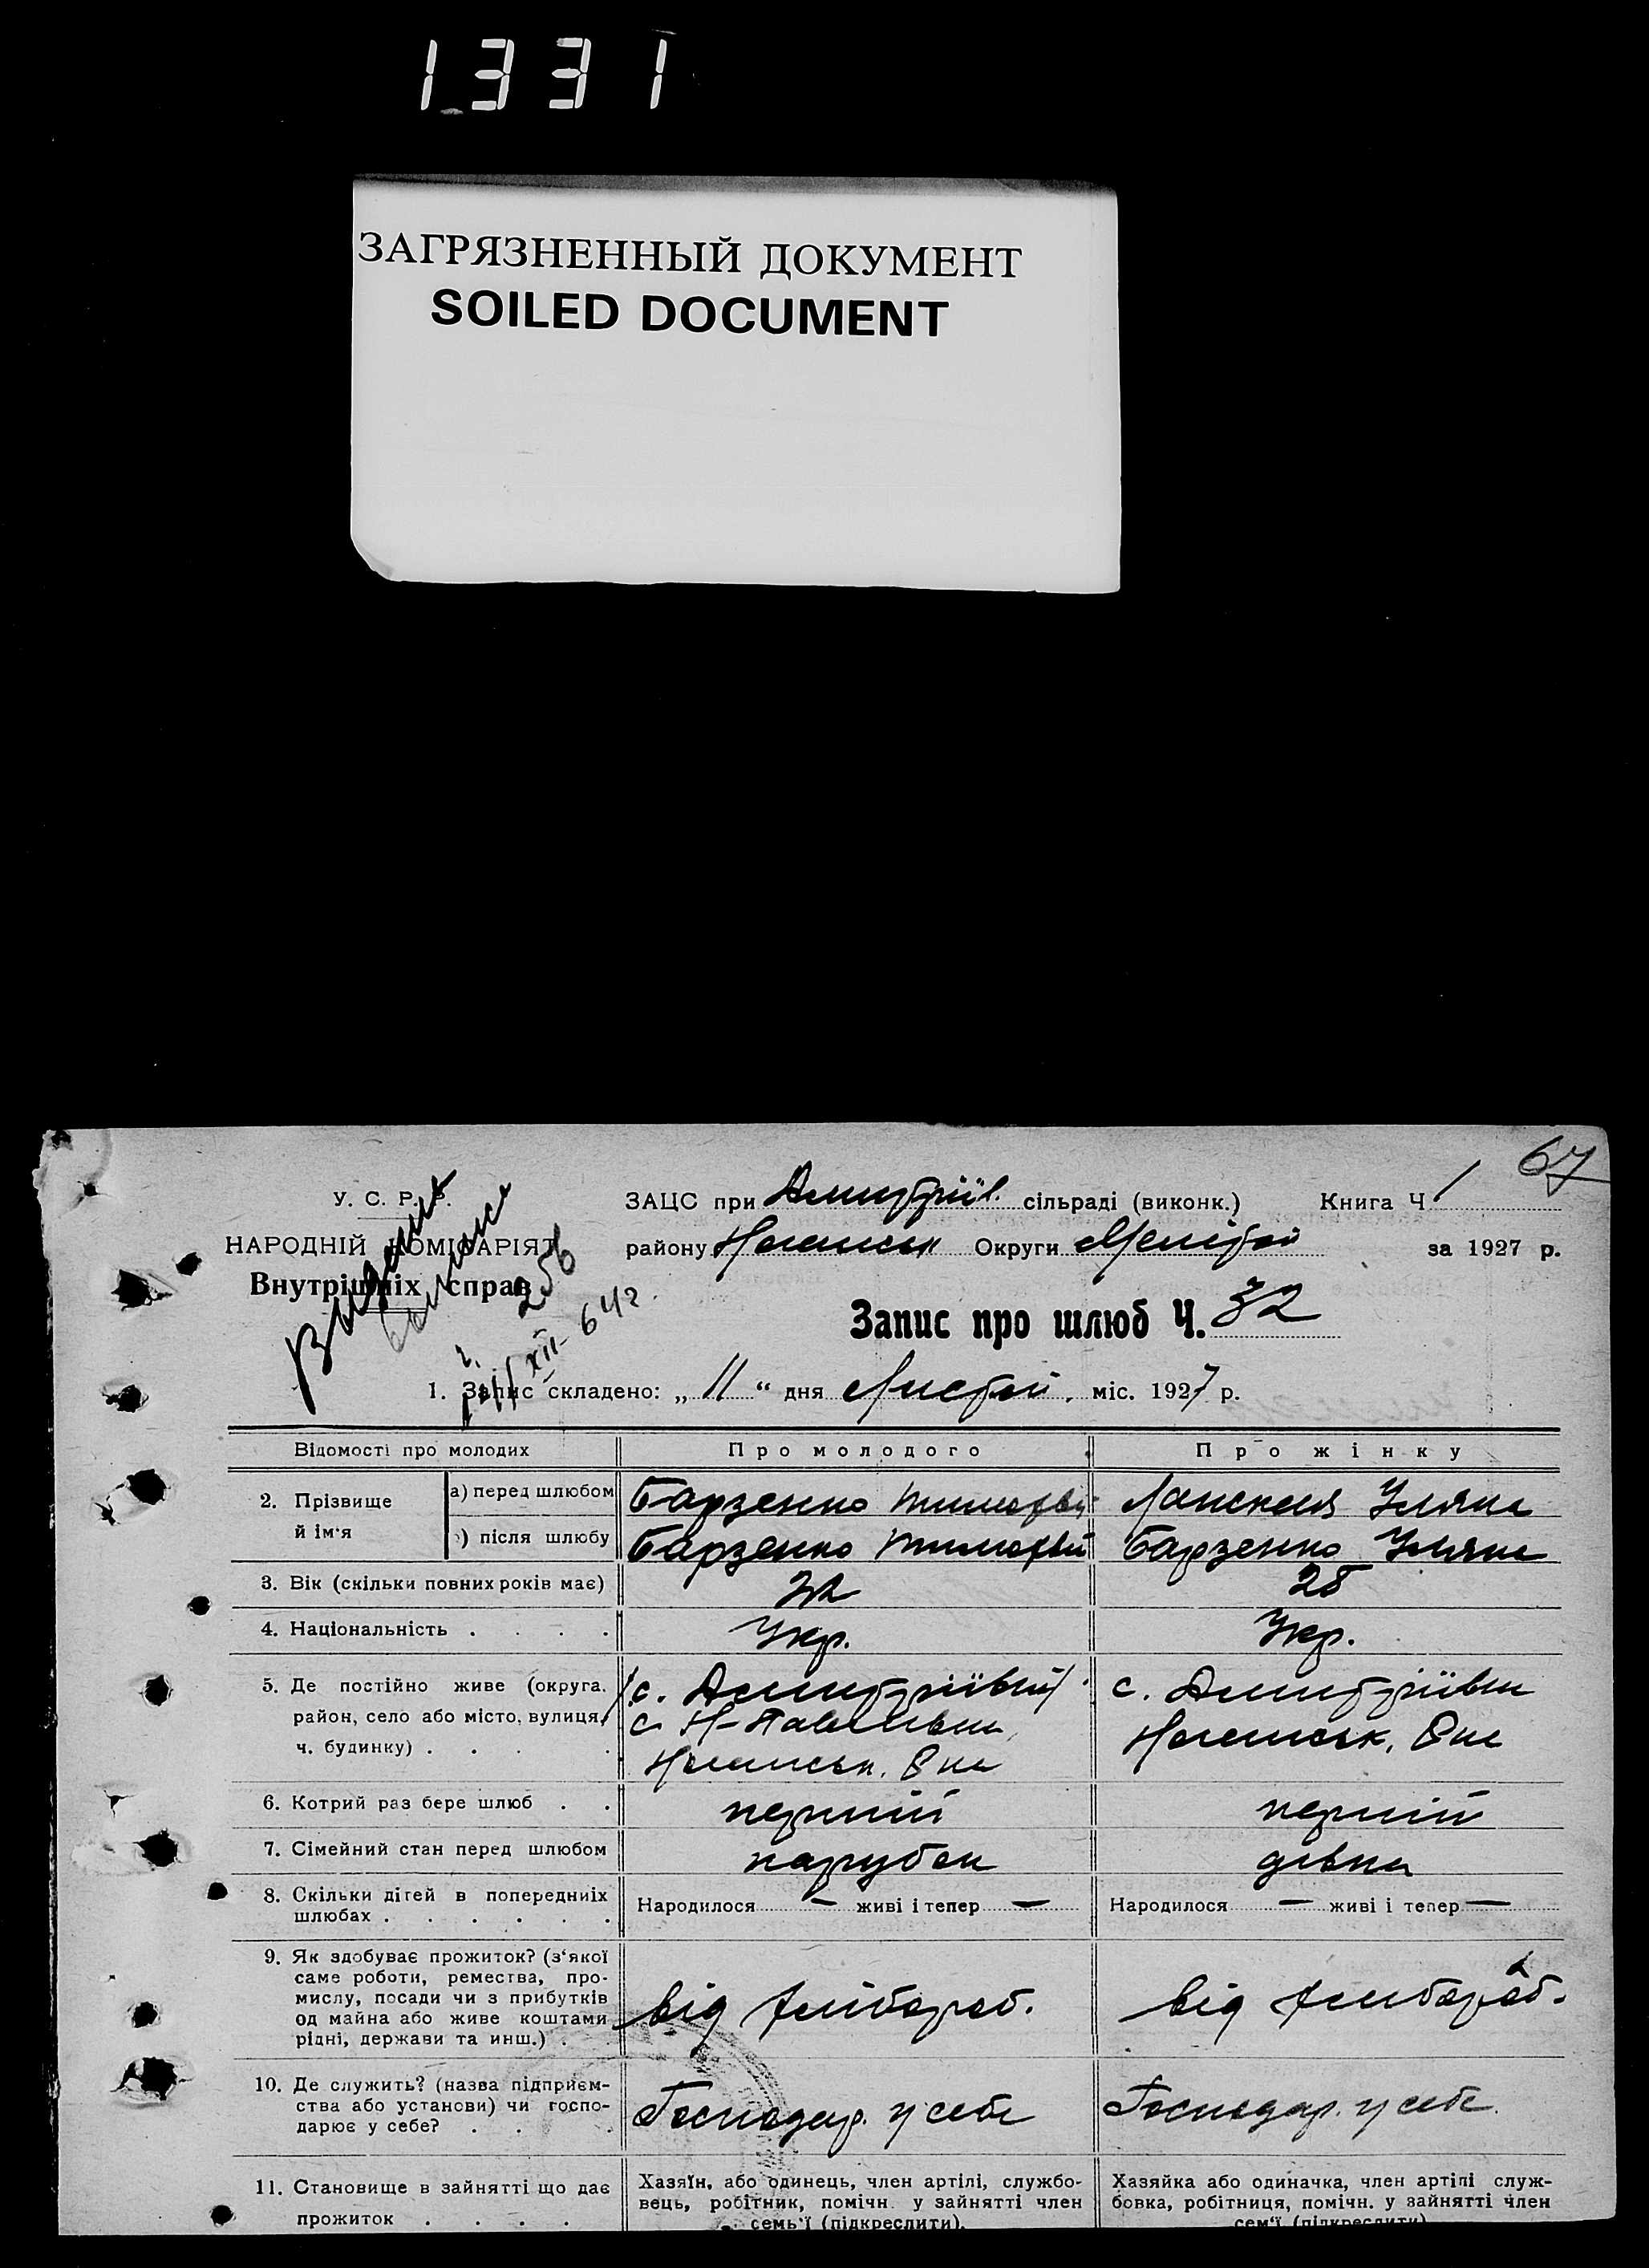 1331
ЗАГРЯЗНЕННЫЙ ДОКУМЕНТ
SOILED DOCUMENT
67
У. С. Р. Р.
НАРОДНІЙ КОМІСАРІЯТ
Внутрішніх справ
ЗАЦС при Дмитріїв. сільраді (виконк.) Книга Ч 1
району Ногайськ Округи Мелітоп за 1927 р.
Запис про шлюб Ч. 32
1. Запис складено: „ 11 “ дня Листоп. міс. 1927 р.
Відомості про молодих Про молодого Про жінку
2. Прізвище й ім'я
а) перед шлюбом Барзенко Тимофій Уляна
б) після шлюбу Барзенко Тимофій Барзенко Уляна
3. Вік (скільки повних років має)
4. Національність . . . . Укр. Укр.
5. Де постійно живе (округа, район, село або місто, вулиця, ч. будинку) . . . .
с. Дмитріївки
с.
Ногайськ.
с. Дмитріївки
Ногайськ.
6. Котрий раз бере шлюб . . перший перший
7. Сімейний стан перед шлюбом парубок дівка
8. Скільки дітей в попередниіх шлюбах . . . . . .
Народилося — живі і тепер —
Народилося — живі і тепер —
9. Як здобуває прожиток? (з'якої
саме роботи, ремества, про-
мислу, посади чи з прибутків
од майна або живе коштами
рідні, держави та инш.) . .
від хлібороб.
від хлібороб.
10. Де служить? (назва підприєм-
ства або установи) чи госпо-
дарює у себе? . . .
Господар. у себе
Господар. у себе.
11. Становище в зайнятті що дає
прожиток . . . .
Хазяїн, або одинець, член артілі, службо-
вець, робітник, помічн. у зайнятті член
семь'ї (підкреслити).
Хазяйка або одиначка, член артілі служ-
бовка, робітниця, помічн. у зайнятті член
сем'ї (підкреслити)